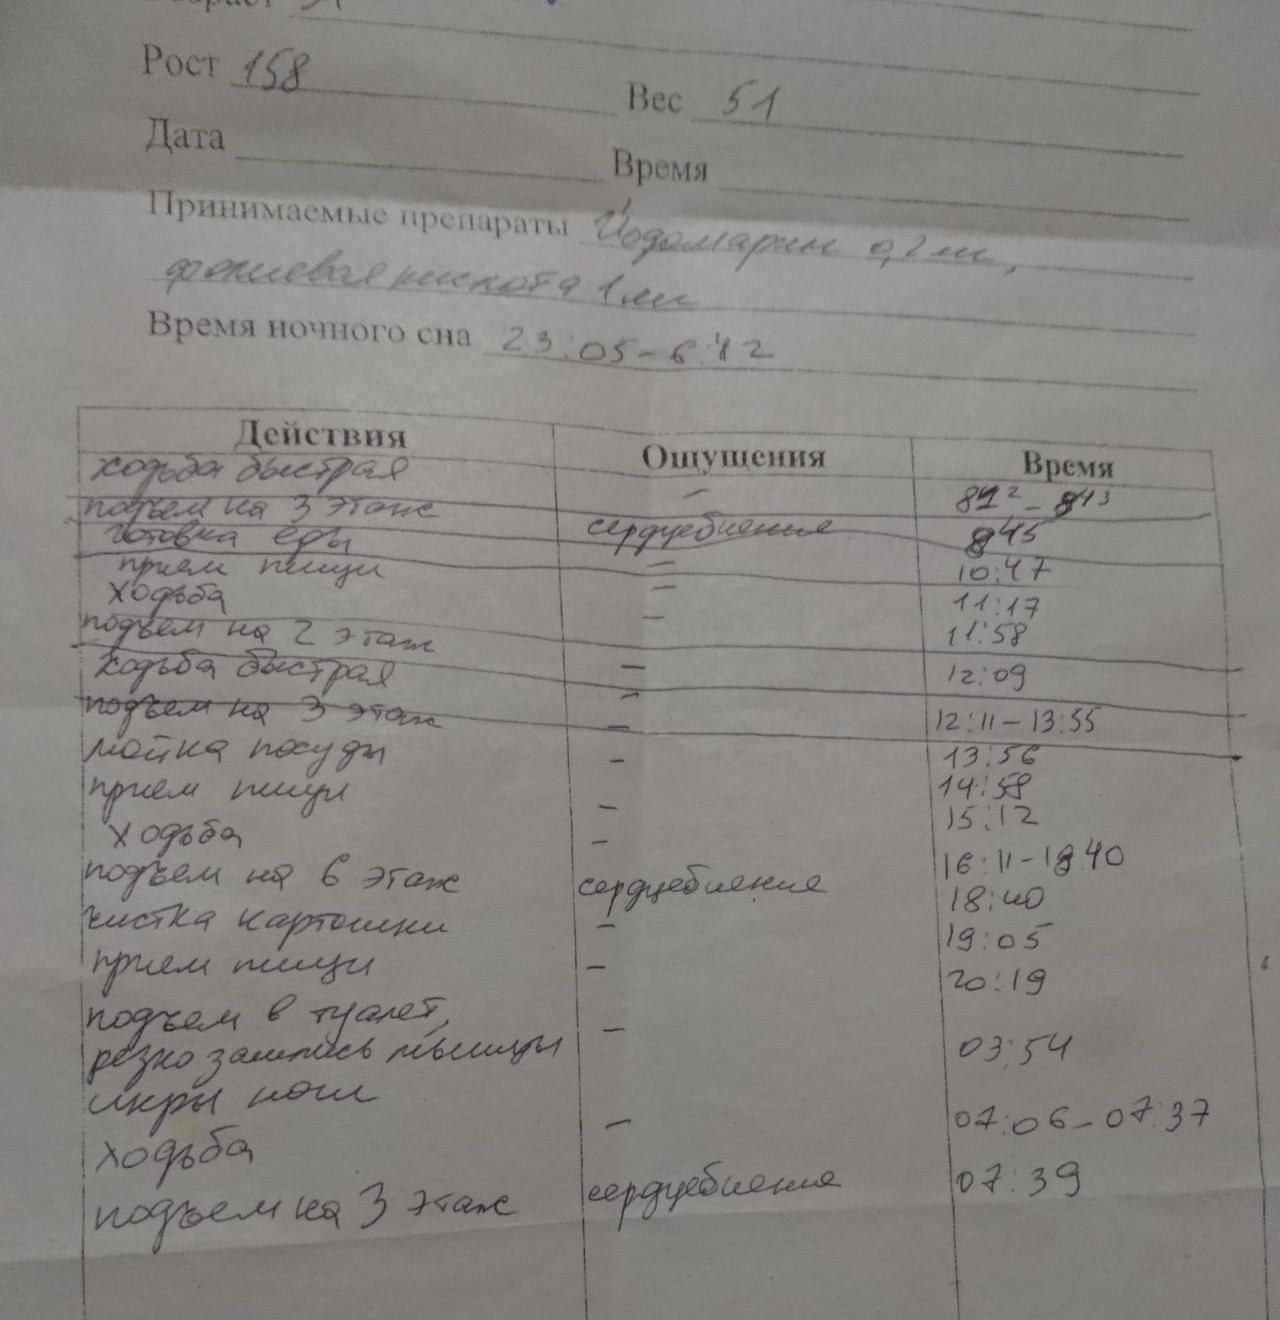 Рост 158 Вес 51
Дата Время
Принимаемые препараты Йодомарин 0,2 мг,
фолиевая кислота 1 мг
Время ночного сна 23:05-6:12
Действия Ощущения Время
ходьба быстрая – 8 12 – 8 43
подъем на 3 этаж сердцебиение 8 45
готовка еды – 10:47
прием пищи – 11:17
ходьба – 11:58
подъем на 2 этаж – 12:09
ходьба быстрая – 12:11-13:55
подъем на 3 этаж – 13:56
мойка посуды – 14:58
прием пищи – 15:12
ходьба – 16:11-18:40
подъем на 6 этаж сердцебиение 18:40
чистка картошки – 19:05
прием пищи – 20:19
подъем в туалет, –
резко мышцы 03:54
икры ноги
ходьба – 07:06-07:37
подъем на 3 этаж сердцебиение 07:39